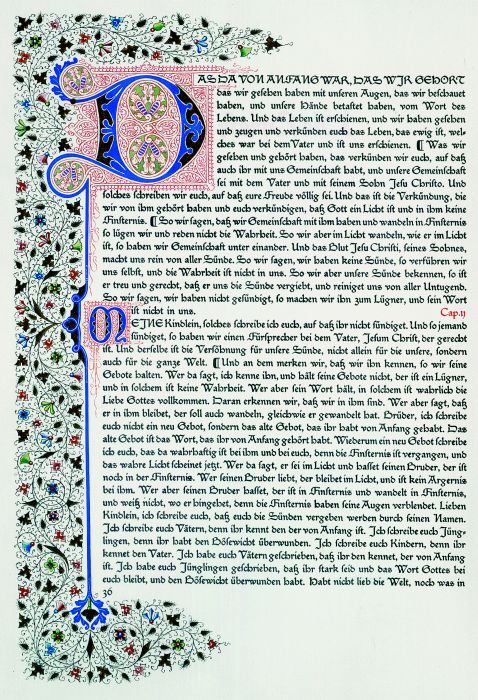 DAS DA VON ANFANG WAR, DAS WJR GEHÖRT
das wir gesehen haben mit unseren Augen, das wir beschauet
haben, und unsere Hände betastet haben, vom Wort des
Lebens. Und das Leben ist erschienen, und wir haben gesehen
und zeugen und verkünden euch das Leben, das ewig ist, wel-
ches war bei dem Vater und ist uns erschienen. ¶ Was wir
gesehen und gehört haben, das verkünden wir euch, auf daß
auch ihr mit uns Gemeinschaft habt, und unsere Gemeinschaft
sei mit dem Vater und mit seinem Sohn Jesu Christo. Und
solches schreiben wir euch, auf daß eure Freude völlig sei. Und das ist die Verkündung, die
wir von ihm gehört haben und euch verkündigen, daß Gott ein Licht ist und in ihm keine
Finsternis. ¶ So wir sagen, daß wir Gemeinschaft mit ihm haben und wandeln in Finsternis
so lügen wir und reden nicht die Wahrheit. So wir aber im Licht wandeln, wie er im Licht
ist, so haben wir Gemeinschaft unter einander. Und das Blut Jesu Christi, seines Sohnes,
macht uns rein von aller Sünde. So wir sagen, wir haben keine Sünde, so verführen wir
uns selbst, und die Wahrheit ist nicht in uns. So wir aber unsere Sünde bekennen, so ist
er treu und gerecht, daß er uns die Sünde vergiebt, und reiniget uns von aller Untugend.
So wir sagen, wir haben nicht gesündigt, so machen wir ihn zum Lügner, und sein Wort
ist nicht in uns. Cap. ij
MEJNE Kindlein, solches schreibe ich euch, auf daß ihr nicht sündiget. Und so jemand
sündiget, so haben wir einen Fürsprecher bei dem Vater, Jesum Christ, der gerecht
ist. Und derselbe ist die Versöhnung für unsere Sünde, nicht allein für die unsere, sondern
auch für die ganze Welt. ¶ Und an dem merken wir, daß wir ihn kennen, so wir seine
Gebote halten. Wer da sagt, ich kenne ihn, und hält seine Gebote nicht, der ist ein Lügner,
und in solchem ist keine Wahrheit. Wer aber sein Wort hält, in solchem ist wahrlich die
Liebe Gottes vollkommen. Daran erkennen wir, daß wir in ihm sind. Wer aber sagt, daß
er in ihm bleibet, der soll auch wandeln, gleichwie er gewandelt hat. Brüder, ich schreibe
euch nicht ein neu Gebot, sondern das alte Gebot, das ihr habt von Anfang gehabt. Das
alte Gebot ist das Wort, das ihr von Anfang gehört habt. Wiederum ein neu Gebot schreibe
ich euch, das da wahrhaftig ist bei ihm und bei euch, denn die Finsternis ist vergangen, und
das wahre Licht scheinet jetzt. Wer da sagt, er sei im Licht und hasset seinen Bruder, der ist
noch in der Finsternis. Wer seinen Bruder liebt, der bleibet im Licht, und ist kein Ärgernis
bei ihm. Wer aber seinen Bruder hasset, der ist in Finsternis und wandelt in Finsternis,
und weiß nicht, wo er hingehet, denn die Finsternis haben seine Augen verblendet. Lieben
Kindlein, ich schreibe euch, daß euch die Sünden vergeben werden durch seinen Namen.
Jch schreibe euch Vätern, denn ihr kennt den der von Anfang ist. Jch schreibe euch Jüng-
lingen, denn ihr habt den Bösewicht überwunden. Jch schreibe euch Kindern, denn ihr
kennet den Vater. Jch habe euch Vätern geschrieben, daß ihr den kennet, der von Anfang
ist. Jch habe euch Jünglingen geschrieben, daß ihr stark seid und das Wort Gottes bei
euch bleibt, und den Bösewicht überwunden habt. Habt nicht lieb die Welt, noch was in
36